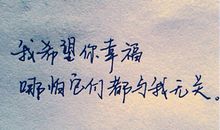 我希望你幸福
哪怕它们都与我无关。